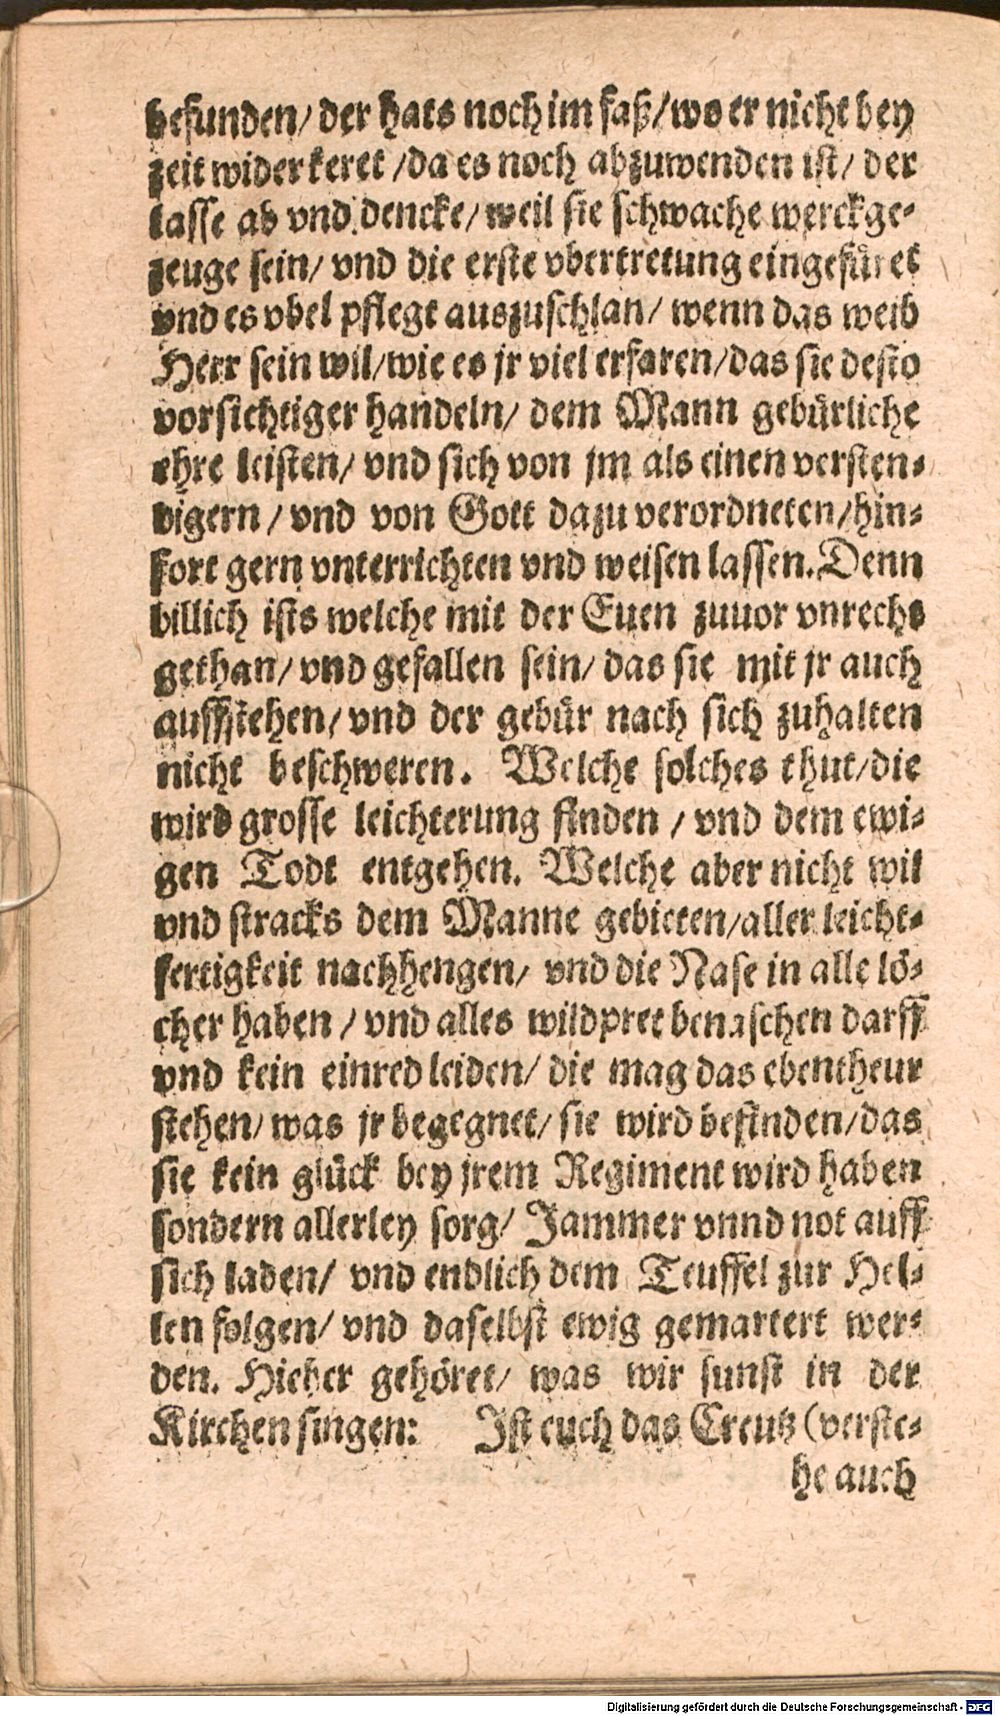 befunden/ der hats noch im faß/ wo er nicht bey
zeit widerkeret / da es noch abzuwenden ist/ der
lasse ab vnd dencke/ weil sie schwache werckge-
zeuge sein/ vnd die erste vbertretung eingefüret
vnd es vbel pflegt auszuschlan/ wenn das weib
Herr sein wil/ wie es jr viel erfaren/ das sie desto
vorsichtiger handeln/ dem Mann gebürliche
ehre leisten/ vnd sich von jm als einen versten-
digern / vnd von Gott dazu verordneten/ hin-
fort gern vnterrichten vnd weisen lassen. Denn
billich ists welche mit der Euen zuuor vnrecht
gethan/ vnd gefallen sein/ das sie mit jr auch
auffstehen/ vnd der gebür nach sich zuhalten
nicht beschweren. Welche solches thut/ die
wird grosse leichterung finden / vnd dem ewi-
gen Todt entgehen. Welche aber nicht wil
vnd stracks dem Manne gebieten/ aller leicht-
fertigkeit nachhengen/ vnd die Nase in alle lö-
cher haben / vnd alles wildpret benaschen darff
vnd kein einred leiden/ die mag das ebentheur
stehen/ was jr begegnet/ sie wird befinden/ das
sie kein glück bey jrem Regiment wird haben
sondern allerley sorg/ Jammer vnnd not auff
sich laden/ vnd endlich dem Teuffel zur Hel-
len folgen/ vnd daselbst ewig gemartert wer-
den. Hieher gehöret/ was wir sunst in der
Kirchen singen: Ist euch das Creutz (verste-
he auch
Digitalisierung gefördert durch die Deutsche Forschungsgemeinschaft - DFG